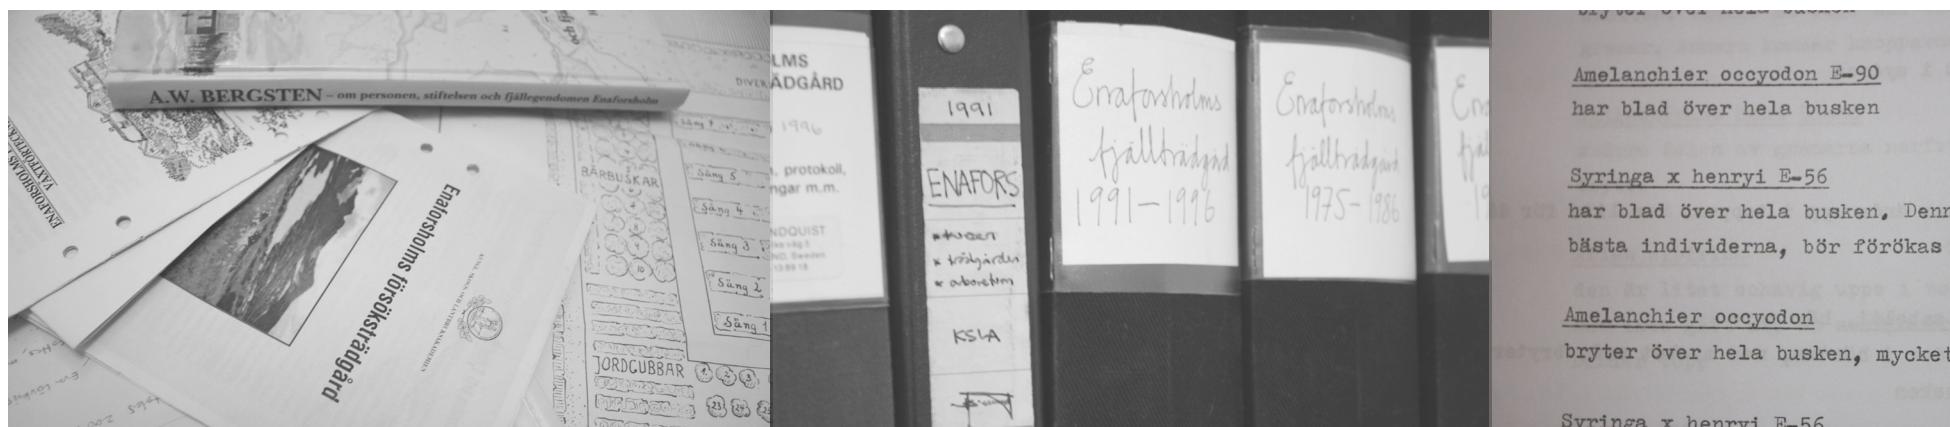 A.W. BERGSTEN – om personen, stiftelsen och fjällegendomen Enaforsholm
ENAFORSHOLMS
VÄXTFÖRTEC
Enaforsholms försöksträdgård
KUNGL. SKOGS- OCH LANTBRUKSAKADEMIEN
BÄRBUSKAR
Säng 5
Säng 4
Säng 3
Säng 2
Säng 1
JORDGUBBAR
1 2 3
23 24 25
LMS
ÄDGÅRD
1996
protokoll,
ngar m.m.
NDQUIST
1991
ENAFORS
* husen
* trädgården
* arboretum
KSLA
Enaforsholms
fjällträdgård
1991–1996
Enaforsholms
fjällträdgård
1975–1986
En
fjäl
19
bryter över hela busken
Amelanchier occyodon E-90
har blad över hela busken
Syringa x henryi E-56
har blad över hela busken. Denn
bästa individerna, bör förökas
Amelanchier occyodon
bryter över hela busken, mycket
Syringa x henryi E-56